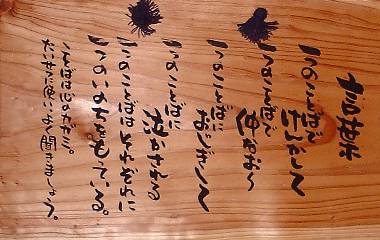 言葉
一つのことばで けんかして
一つのことばで 仲なおり
一つのことばに おじぎして
一つのことばに 泣かされる
一つのことばはそれぞれに
一つのいのちをもっている。
ことばは心のカガミ。
だいせつに使い、よく聞きましょう。